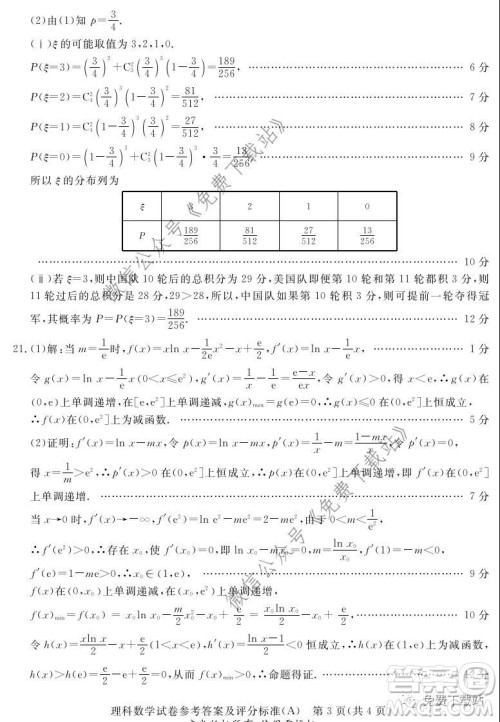 (2)由(1)知 p=3/4.
(ⅰ)ξ的可能取值为 3,2,1,0.
P(ξ=3)=(3/4)^3+C_3^2(3/4)^3(1-3/4)=189/256, 6 分
81/512, 7 分
27/512, 8 分
13/256, 9 分
所以 ξ 的分布列为
ξ 3 2 1 0
P 189/256 81/512 27/512 13/256
10 分
(ⅱ)若 ξ=3,则中国队 10 轮后的总积分为 29 分,美国队即便第 10 轮和第 11 轮都积 3 分,则
11 轮过后的总积分是 28 分,29>28,所以,中国队如果第 10 轮积 3 分,则可提前一轮夺得冠
军,其概率为 P=P(ξ=3)=189/256. 12 分
21.(1)解:当 m=1/e 时,f(x)=xln x-1/2e x²-x+e/2,f′(x)=ln x-1/e x, 1 分
令 g(x)=ln x-1/e x(0<x≤e²),g′(x)=1/x-1/e=(e-x)/ex,令 g′(x)>0,得 x<e,∴g(x)在
(0,e)上单调递增,在[e,e²]上单调递减,g(x)max=g(e)=0,∴g(x)≤0 在(0,e²]上恒成立,
∴f(x)在(0,e²]上为减函数. 5 分
(2)证明:f′(x)=ln x-mx,令 p(x)=ln x-mx,p′(x)=1/x-m=(1-mx)/x,令 p′(x)>0,
得 x<1/m,由于 0<m<1/e²
得 x=1/m>e²,∴p′(x)>0 在(0,e²]上恒成立,∴p(x)在(0,e²]上单调递增,∴f′(x)在(0,e²]
上单调递增. 7 分
当 x→0 时,f′(x)→-∞,f′(e²)=ln e²-me²=2-me²,由于 0<m<1/e²,
∴f′(e²)>0,∴存在 x₀,使 f′(x₀)=0,∴ln x₀-mx₀=0,∴m=ln x₀/x₀,
f′(e)=1-me>0,∴x₀∈(1,e), 9 分
∴f(x)在(0,x₀)上单调递减,在(x₀,e²]上单调递增,
f(x)min=f(x₀)=x₀ln x₀-m/2 x₀²-x₀+e/2=x₀ln x₀/2-x₀+e/2, 10 分
令 h(x)=xln x/2-x+e/2(1<x<e),h′(x)=1/2 ln x-1/2<0 恒成立,∴h(x)在(1,e)上单调递减,
h(x)>h(e)=0,从而 f(x)min>0,命题得证.
理科数学试卷参考答案及评分标准(A) 第 3 页(共 4 页)
微信公众号《免费下载站》
微信公众号《免费下载站》
免费下载站